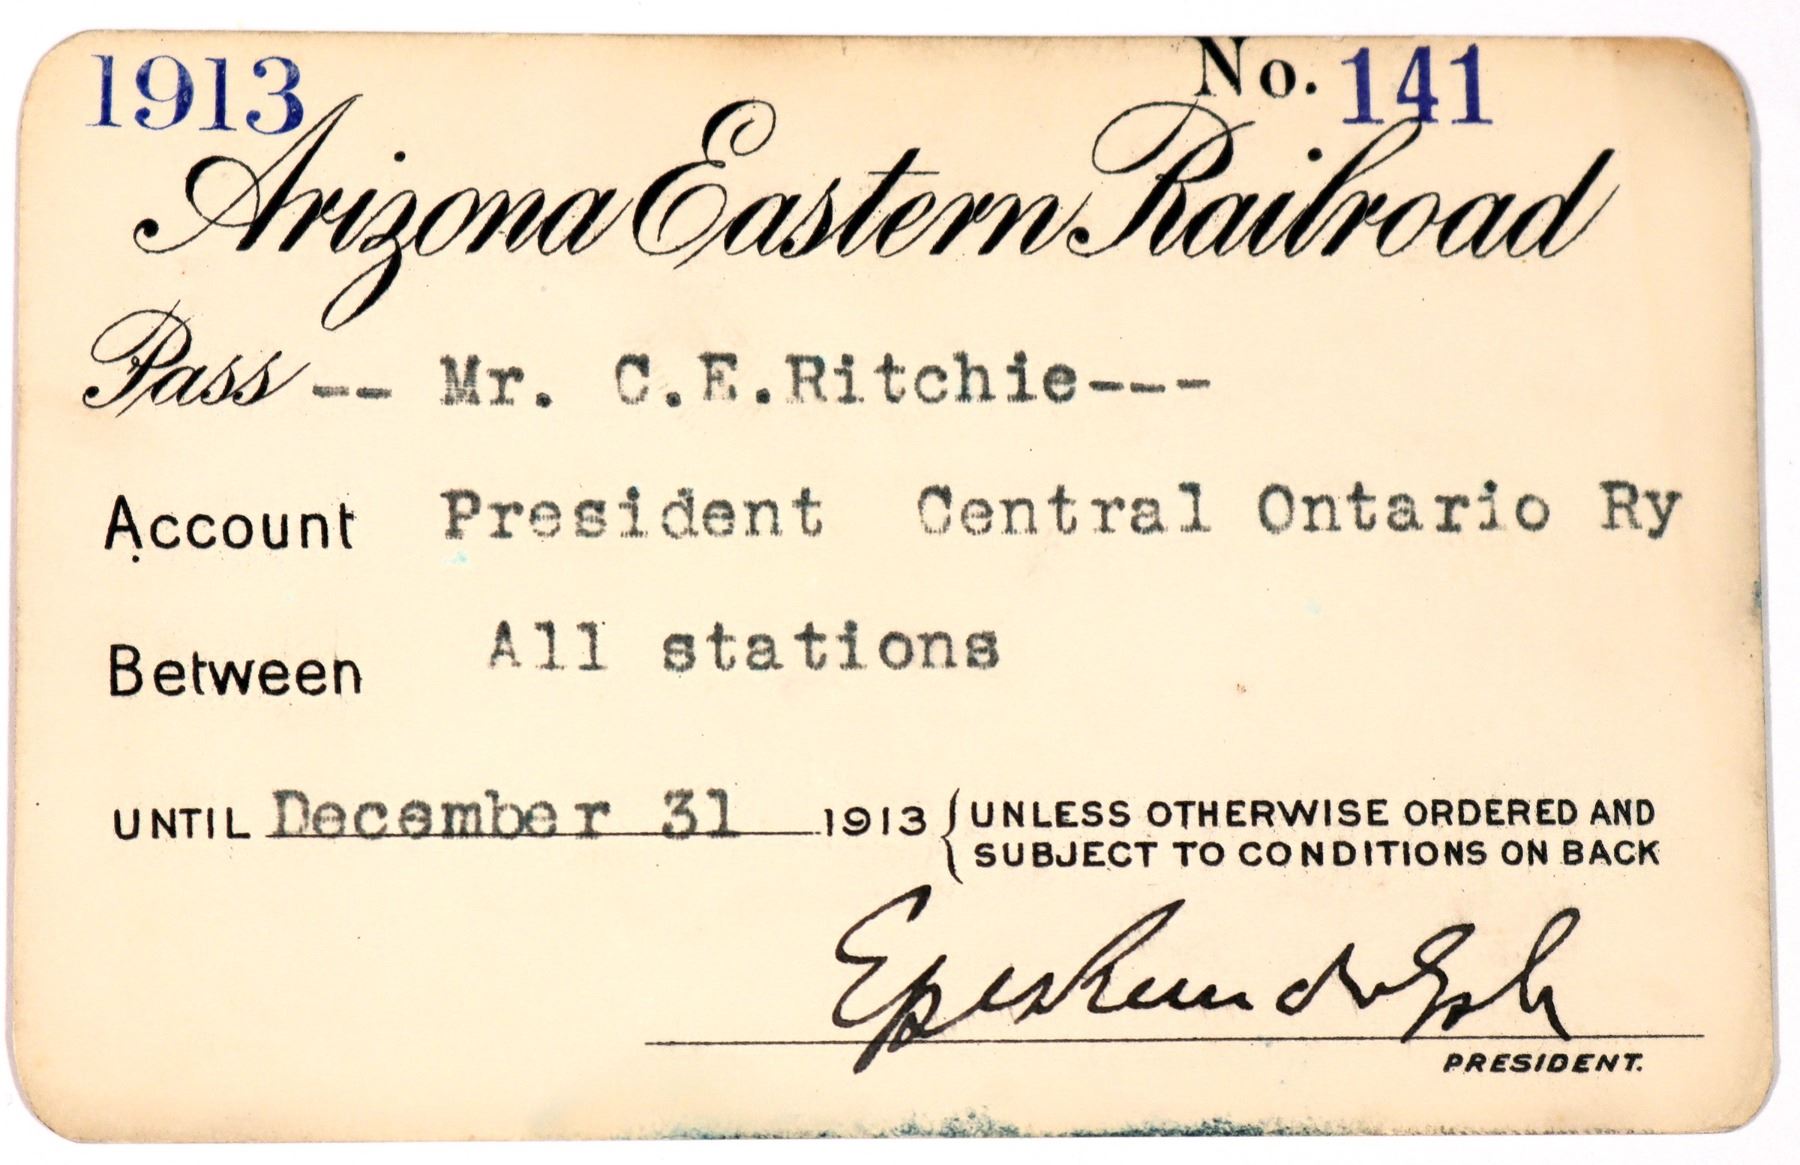 1913 No. 141
Arizona Eastern Railroad
Pass -- Mr. C.E.Ritchie---
Account President Central Ontario Ry
Between All stations
UNTIL December 31 1913 { UNLESS OTHERWISE ORDERED AND
SUBJECT TO CONDITIONS ON BACK
Epes Randolph
PRESIDENT.